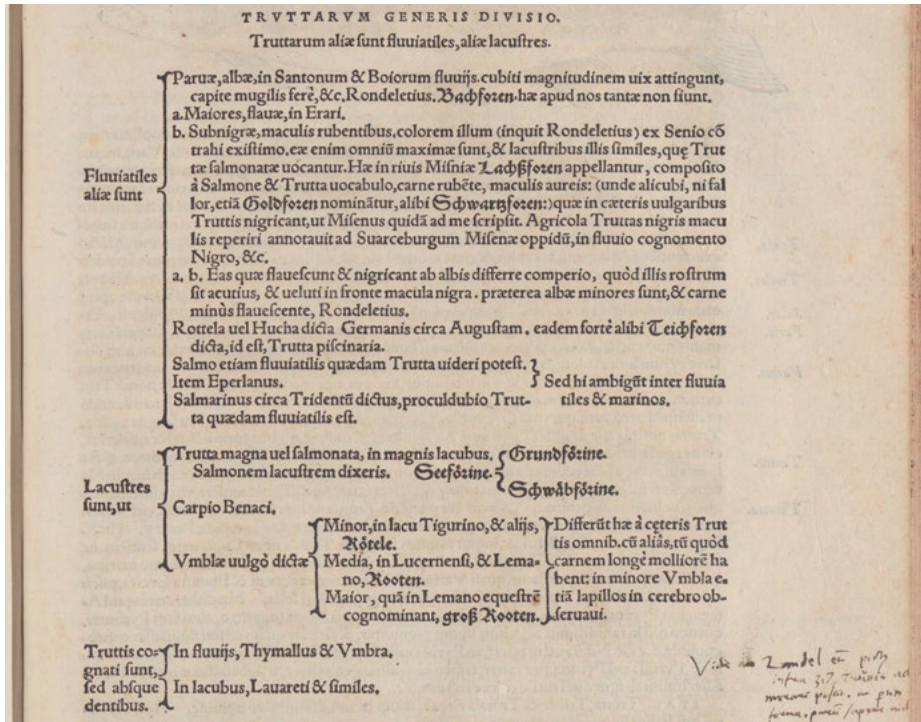 TRVTTARVM GENERIS DIVISIO.
Truttarum aliæ sunt fluuiatiles, aliæ lacustres.
Fluuiatiles
aliæ sunt
Paruæ, albæ, in Santonum & Boiorum fluuijs. cubiti magnitudinem uix attingunt,
capite mugilis ferè, &c. Rondeletius. Bachforen. hæ apud nos tantæ non fiunt.
a. Maiores, flauæ, in Erari.
b. Subnigræ, maculis rubentibus. colorem illum (inquit Rondeletius) ex Senio cõ
trahi existimo. eæ enim omniũ maximæ sunt, & lacustribus illis similes, quę Trut
tæ salmonatæ uocantur. Hæ in riuis Misniæ Lachßforen appellantur, composito
à Salmone & Trutta uocabulo, carne rubẽte, maculis aureis: (unde alicubi, ni fal
lor, etiã Goldforen nominãtur, alibi Schwartzforen:) quæ in cæteris uulgaribus
Truttis nigricant, ut Misenus quidã ad me scripsit. Agricola Truttas nigris macu
lis reperiri annotauit ad Suarceburgum Misenæ oppidũ, in fluuio cognomento
Nigro, &c.
a. b. Eas quæ flauescunt & nigricant ab albis differre comperio, quòd illis rostrum
sit acutius, & ueluti in fronte macula nigra. præterea albæ minores sunt, & carne
minùs flauescente, Rondeletius.
Rottela uel Hucha dicta Germanis circa Augustam. eadem fortè alibi Teichforen
dicta, id est, Trutta piscinaria.
Salmo etiam fluuiatilis quædam Trutta uideri potest.
Item Eperlanus.
Sed hi ambigũt inter fluuia
tiles & marinos.
Salmarinus circa Tridentũ dictus, proculdubio Trut-
ta quædam fluuiatilis est.
Lacustres
sunt, ut
Trutta magna uel salmonata, in magnis lacubus.
Salmonem lacustrem dixeris. Seefórine.
Grundfórine.
Schwäbfórine.
Carpio Benaci.
Vmblæ uulgò dictæ
Minor, in lacu Tigurino, & alijs,
Rőtele.
Media, in Lucernensi, & Lema-
no, Rooten.
Maior, quã in Lemano equestrẽ
cognominant, groß Rooten.
Differũt hæ à cęteris Trut
tis omnib. cũ aliàs, tũ quòd
carnem longè molliorẽ ha
bent: in minore Vmbla e-
tiã lapillos in cerebro ob-
seruaui.
Truttis co-
gnati sunt,
sed absque
dentibus.
In fluuijs, Thymallus & Vmbra.
In lacubus, Lauareti & similes.
Vide
infra 317